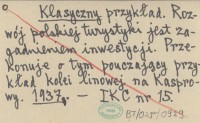 Klasyczny przykład. Roz-
wój polskiej turystyki jest za-
gadnieniem inwestycji. Prze-
konuje o tym pouczający przy-
kład kolei linowej na Kaspro-
wy. 1937. — IKC nr 15
BT/025/0929